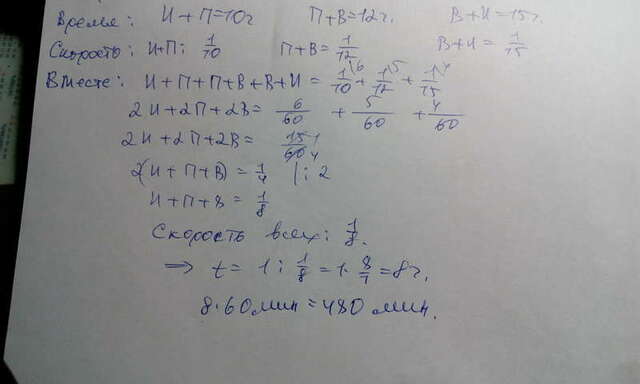 Время: И+П=10ч П+В=12ч. В+И=15ч.
Скорость: И+П: 1/10 П+В=1/12 В+И=1/15
Вместе: И+П+П+В+В+И=1/10 6+1/12 5+1/15 4
2И+2П+2В=6/60+5/60+4/60
2И+2П+2В=15 1/60 4
2(И+П+В)=1/4 |:2
И+П+В=1/8
Скорость всех: 1/8.
⇒ t=1:1/8=1·8/1=8ч.
8·60мин=480 мин.